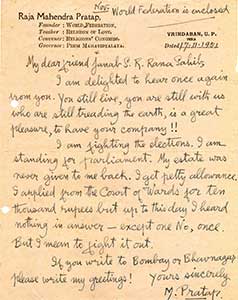 Nov World Federation is enclosed
RAJA MAHENDRA PRATAP,
FOUNDER : WORLD FEDERATION,
TEACHER : RELIGION OF LOVE,
CONVENER : RELIGIONS' CONGRESS,
GOVERNOR : PREM MAHAVIDYALAYA.
VRINDABAN, U. P.
INDIA
Dated 17.11.1951
My dear friend Janab S. K. Rana Sahib,
I am delighted to hear once again
from you. You still live, you are still with us
who are still treading the earth, is a great
pleasure, to have your company!!
I am fighting the elections. I am
standing for parliament. My estate was
never given to me back. I get petty allowance.
I applied from the Court of Wards for ten
thousand rupees but up to this day I heard
nothing in answer – except one No, once.
But I mean to fight it out.
If you write to Bombay or Bhavnagar
please write my greetings! Yours sincerely
M. Pratap.